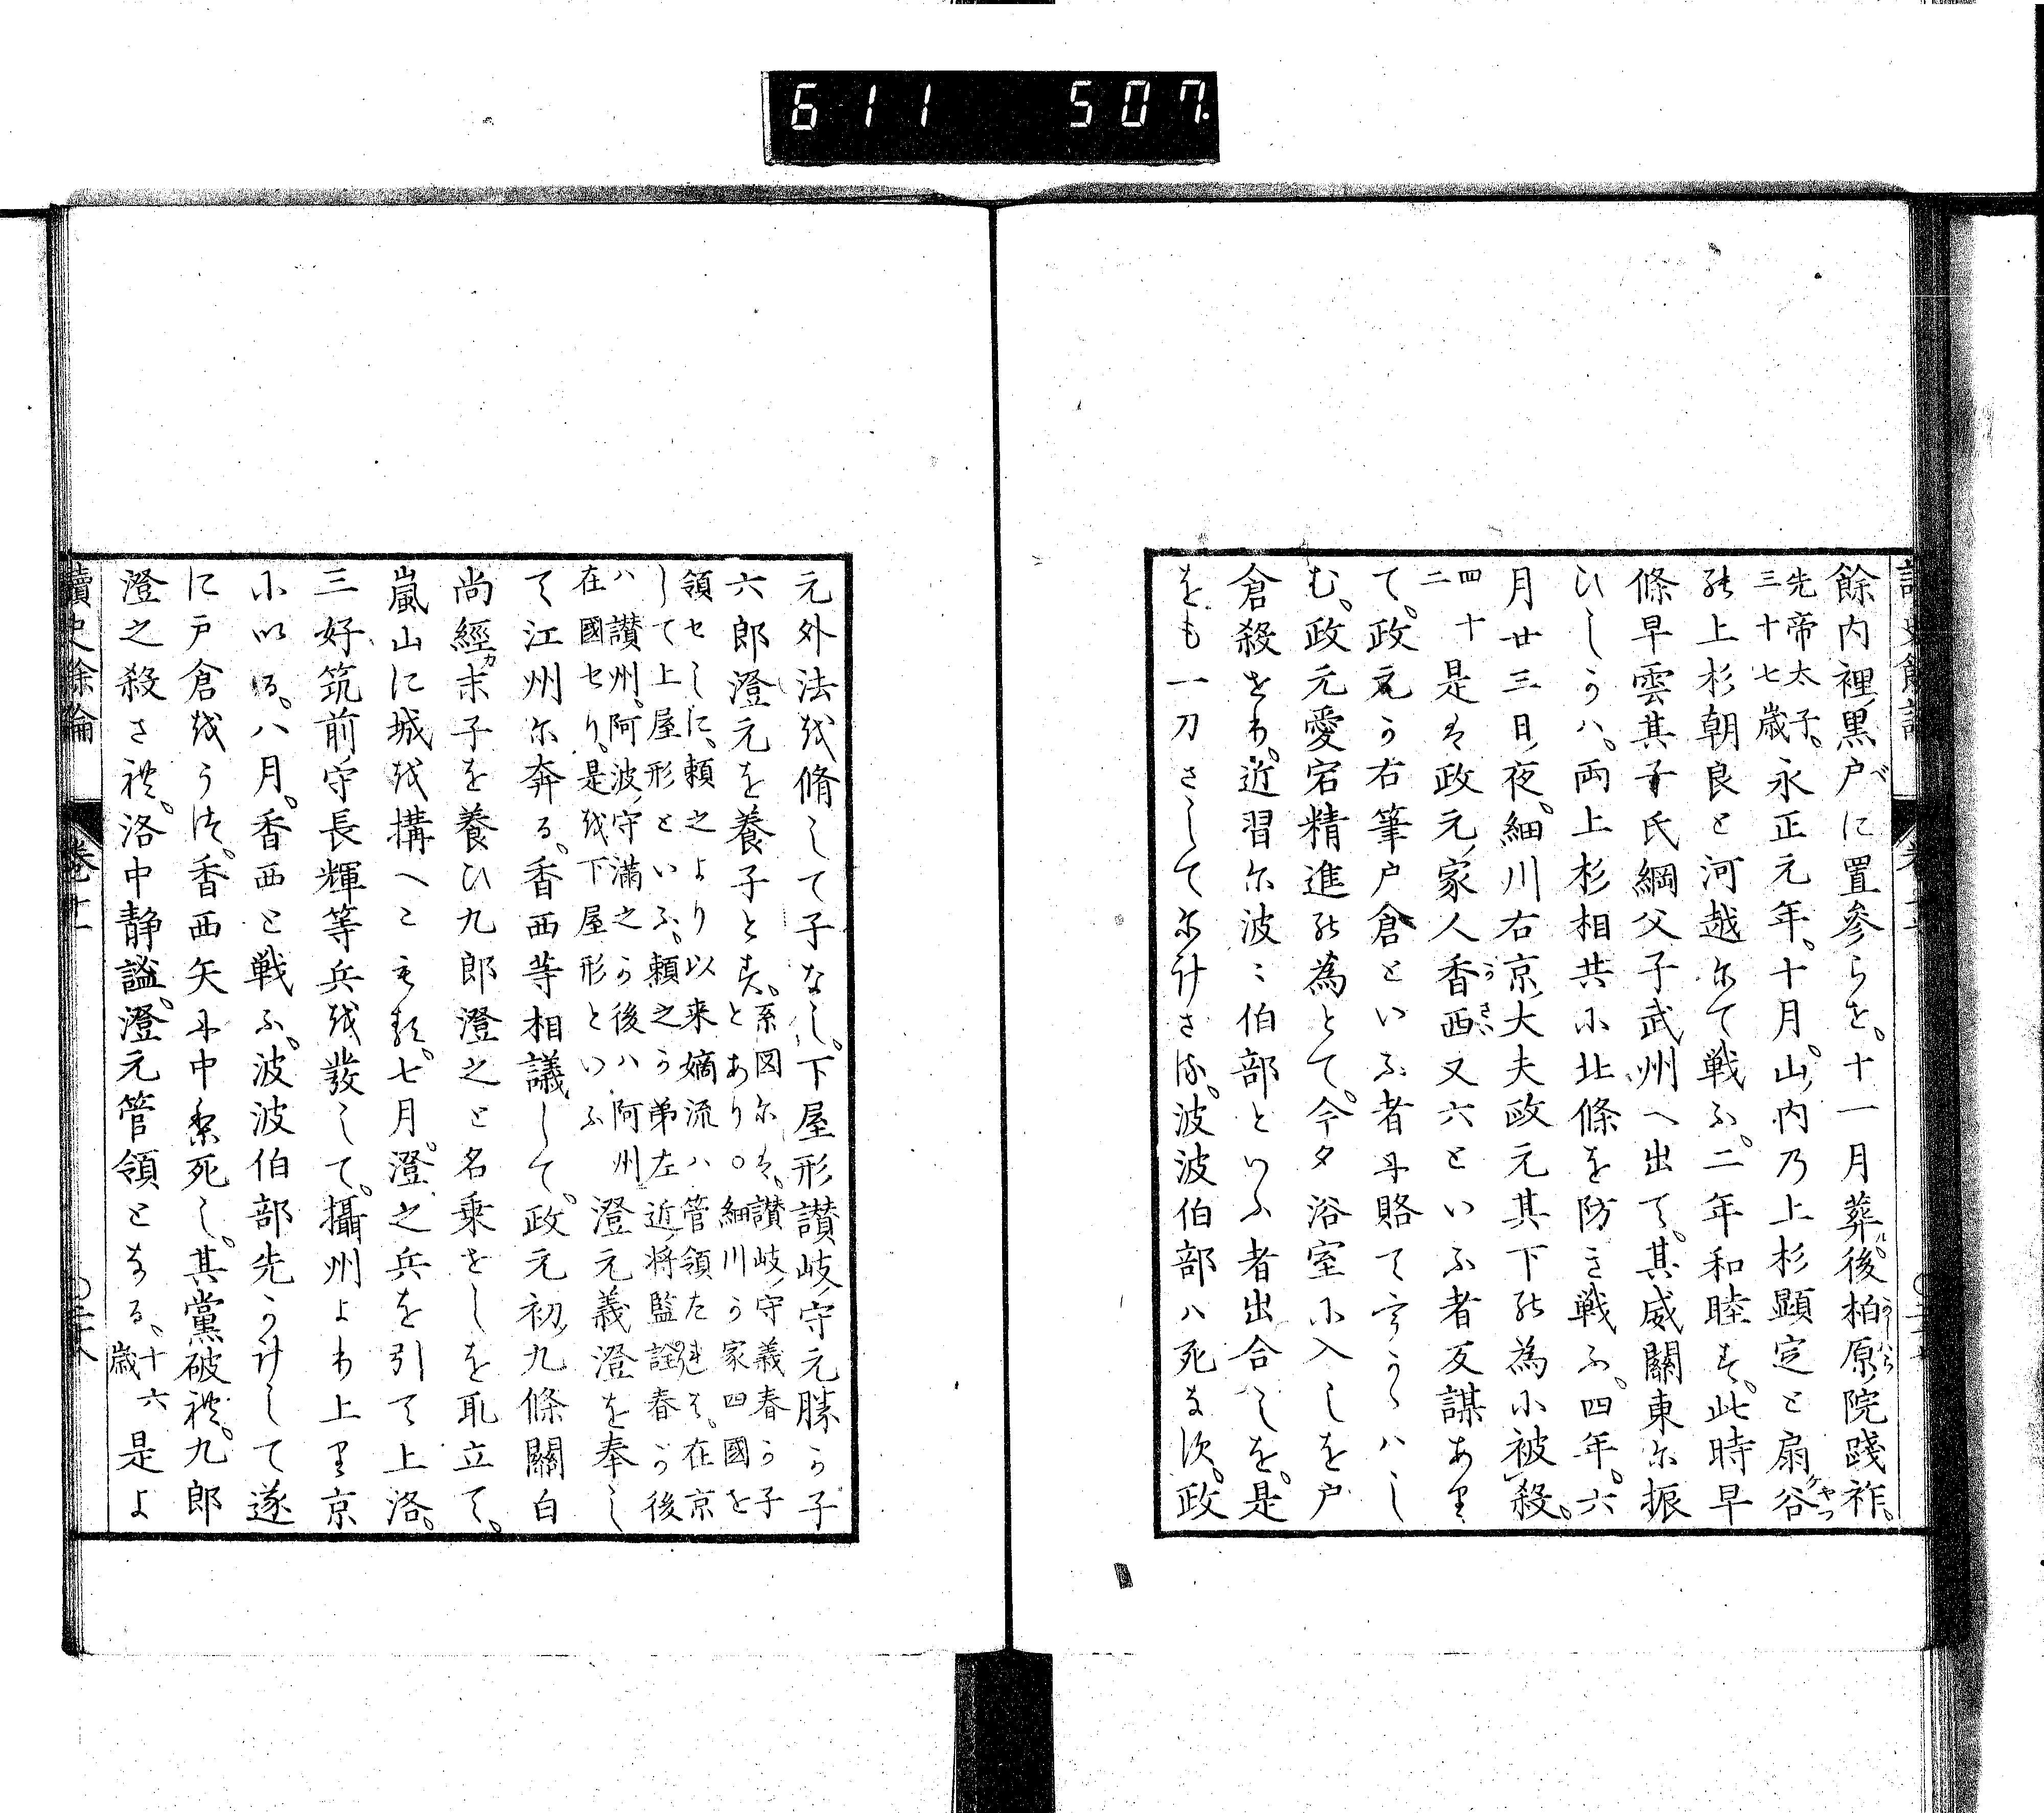 611 507
餘内裡黒戸に置参らを。十一月葬後柏原院踐祚。
先帝太子。三十七歳永正元年。十月。山内乃上杉顕定と扇谷
能上杉朝良と河越尓て戦ふ。二年和睦す。此時早
條早雲其子氏綱父子武州へ出て。其威關東尓振
ひしうハ。両上杉相共小北條を防き戦ふ。四年。六
月廿三日夜。細川右京大夫政元其下能為小被殺。
四十二是は政元家人香西又六といふ者反謀あり
て。政元う右筆戸倉といふ者尓賂てうかゝハし
む。政元愛宕精進能為とて。今夕浴室小入しを戸
倉殺せり。近習尓波〻伯部といふ者出合しを。是
をも一刀さして尓けさる。波波伯部ハ死ま須。政
元外法越脩して子なし。下屋形讃岐守元勝う子
六郎澄元を養子とす。系図尓は。讃岐守義春う子とあり。○細川う家四國を
領せしに。頼之より以来嫡流ハ管領たれは。在京して上屋形といふ。頼之う弟左近将監詮春う後
ハ讃州。阿波守滿之う後ハ阿州在國せり。是越下屋形といふ澄元義澄を奉し
て江州尓奔る。香西等相議して。政元初九條關白
尚經末子を養ひ九郎澄之と名乗をしを取立て。
嵐山に城越搆へこもる。七月。澄之兵を引て上洛。
三好筑前守長輝等兵越發して。攝州より上り京
小いる。八月。香西と戦ふ。波波伯部先うけして遂
に戸倉越うつ。香西矢尓中り死し。其黨破礼。九郎
澄之殺さ礼。洛中静謐。澄元管領となる。十六歳是よ
讀史餘論 卷十一